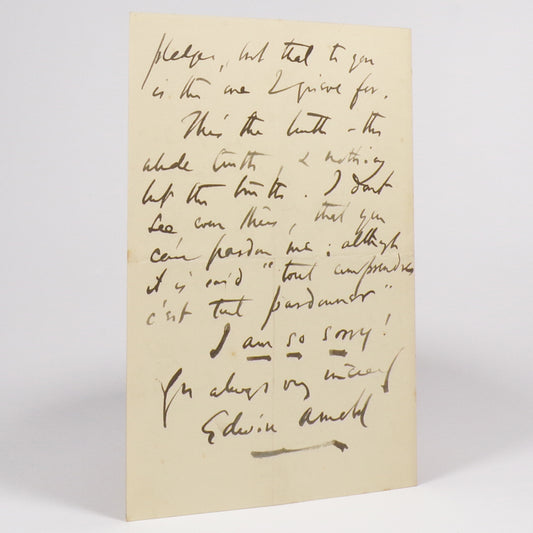 pledges, but that to you
is the one I grieve for.
This the truth - the
whole truth, & nothing
but the truth. I dont
see even then, that you
can pardon me; although
it is said "tout comprendre
c'est tout pardonner"
I am so sorry!
Yrs always very sincerely
Edwin Arnold